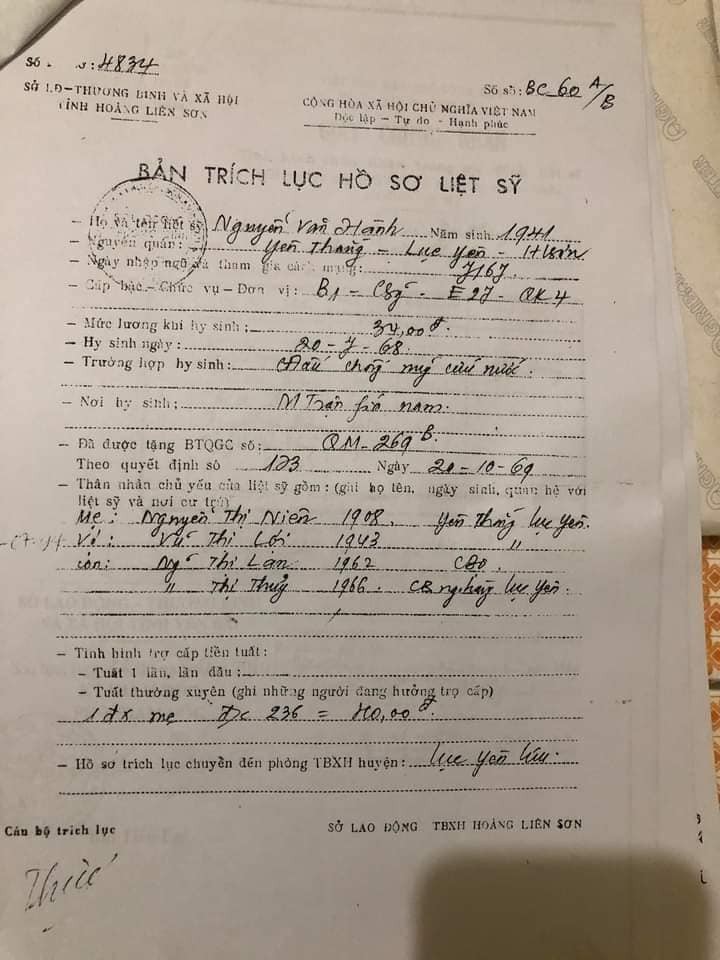 Số : 4834
Số sổ: BC 60 A/B
SỞ LĐ-THƯƠNG BINH VÀ XÃ HỘI
TỈNH HOÀNG LIÊN SƠN
CỘNG HÒA XÃ HỘI CHỦ NGHĨA VIỆT NAM
Độc lập - Tự do - Hạnh phúc
BẢN TRÍCH LỤC HỒ SƠ LIỆT SỸ
- Họ và tên liệt sỹ Nguyễn Văn Hành Năm sinh 1941
- Nguyên quán: Yên Thắng - Lục Yên -
- Ngày nhập ngũ và tham gia cách mạng: 7167.
- Cấp bậc - Chức vụ - Đơn vị: B1 - - E27 - QK4
- Mức lương khi hy sinh: 34,00đ.
- Hy sinh ngày: 20-7-68.
- Trường hợp hy sinh: chống mỹ cứu nước.
- Nơi hy sinh: M Trận phía nam.
- Đã được tặng BTQGC số: QM-269B.
Theo quyết định số 123 Ngày 20-10-69
- Thân nhân chủ yếu của liệt sỹ gồm: (ghi họ tên, ngày sinh, quan hệ với
liệt sỹ và nơi cư trú)
Mẹ: Nguyễn Thị Niên 1908. Yên Thắng lục yên.
Vợ: Vũ Thị Lới 1943 "
Con: Thị Lan 1962
" Thị Thuỷ 1966 lục yên.
- Tình hình trợ cấp tiền tuất:
- Tuất 1 lần, lần đầu:
- Tuất thường xuyên (ghi những người đang hưởng trợ cấp)
1 đx mẹ 236 = 40,00đ.
- Hồ sơ trích lục chuyển đến phòng TBXH huyện: lục yên
Cán bộ trích lục
SỞ LAO ĐỘNG TBXH HOÀNG LIÊN SƠN